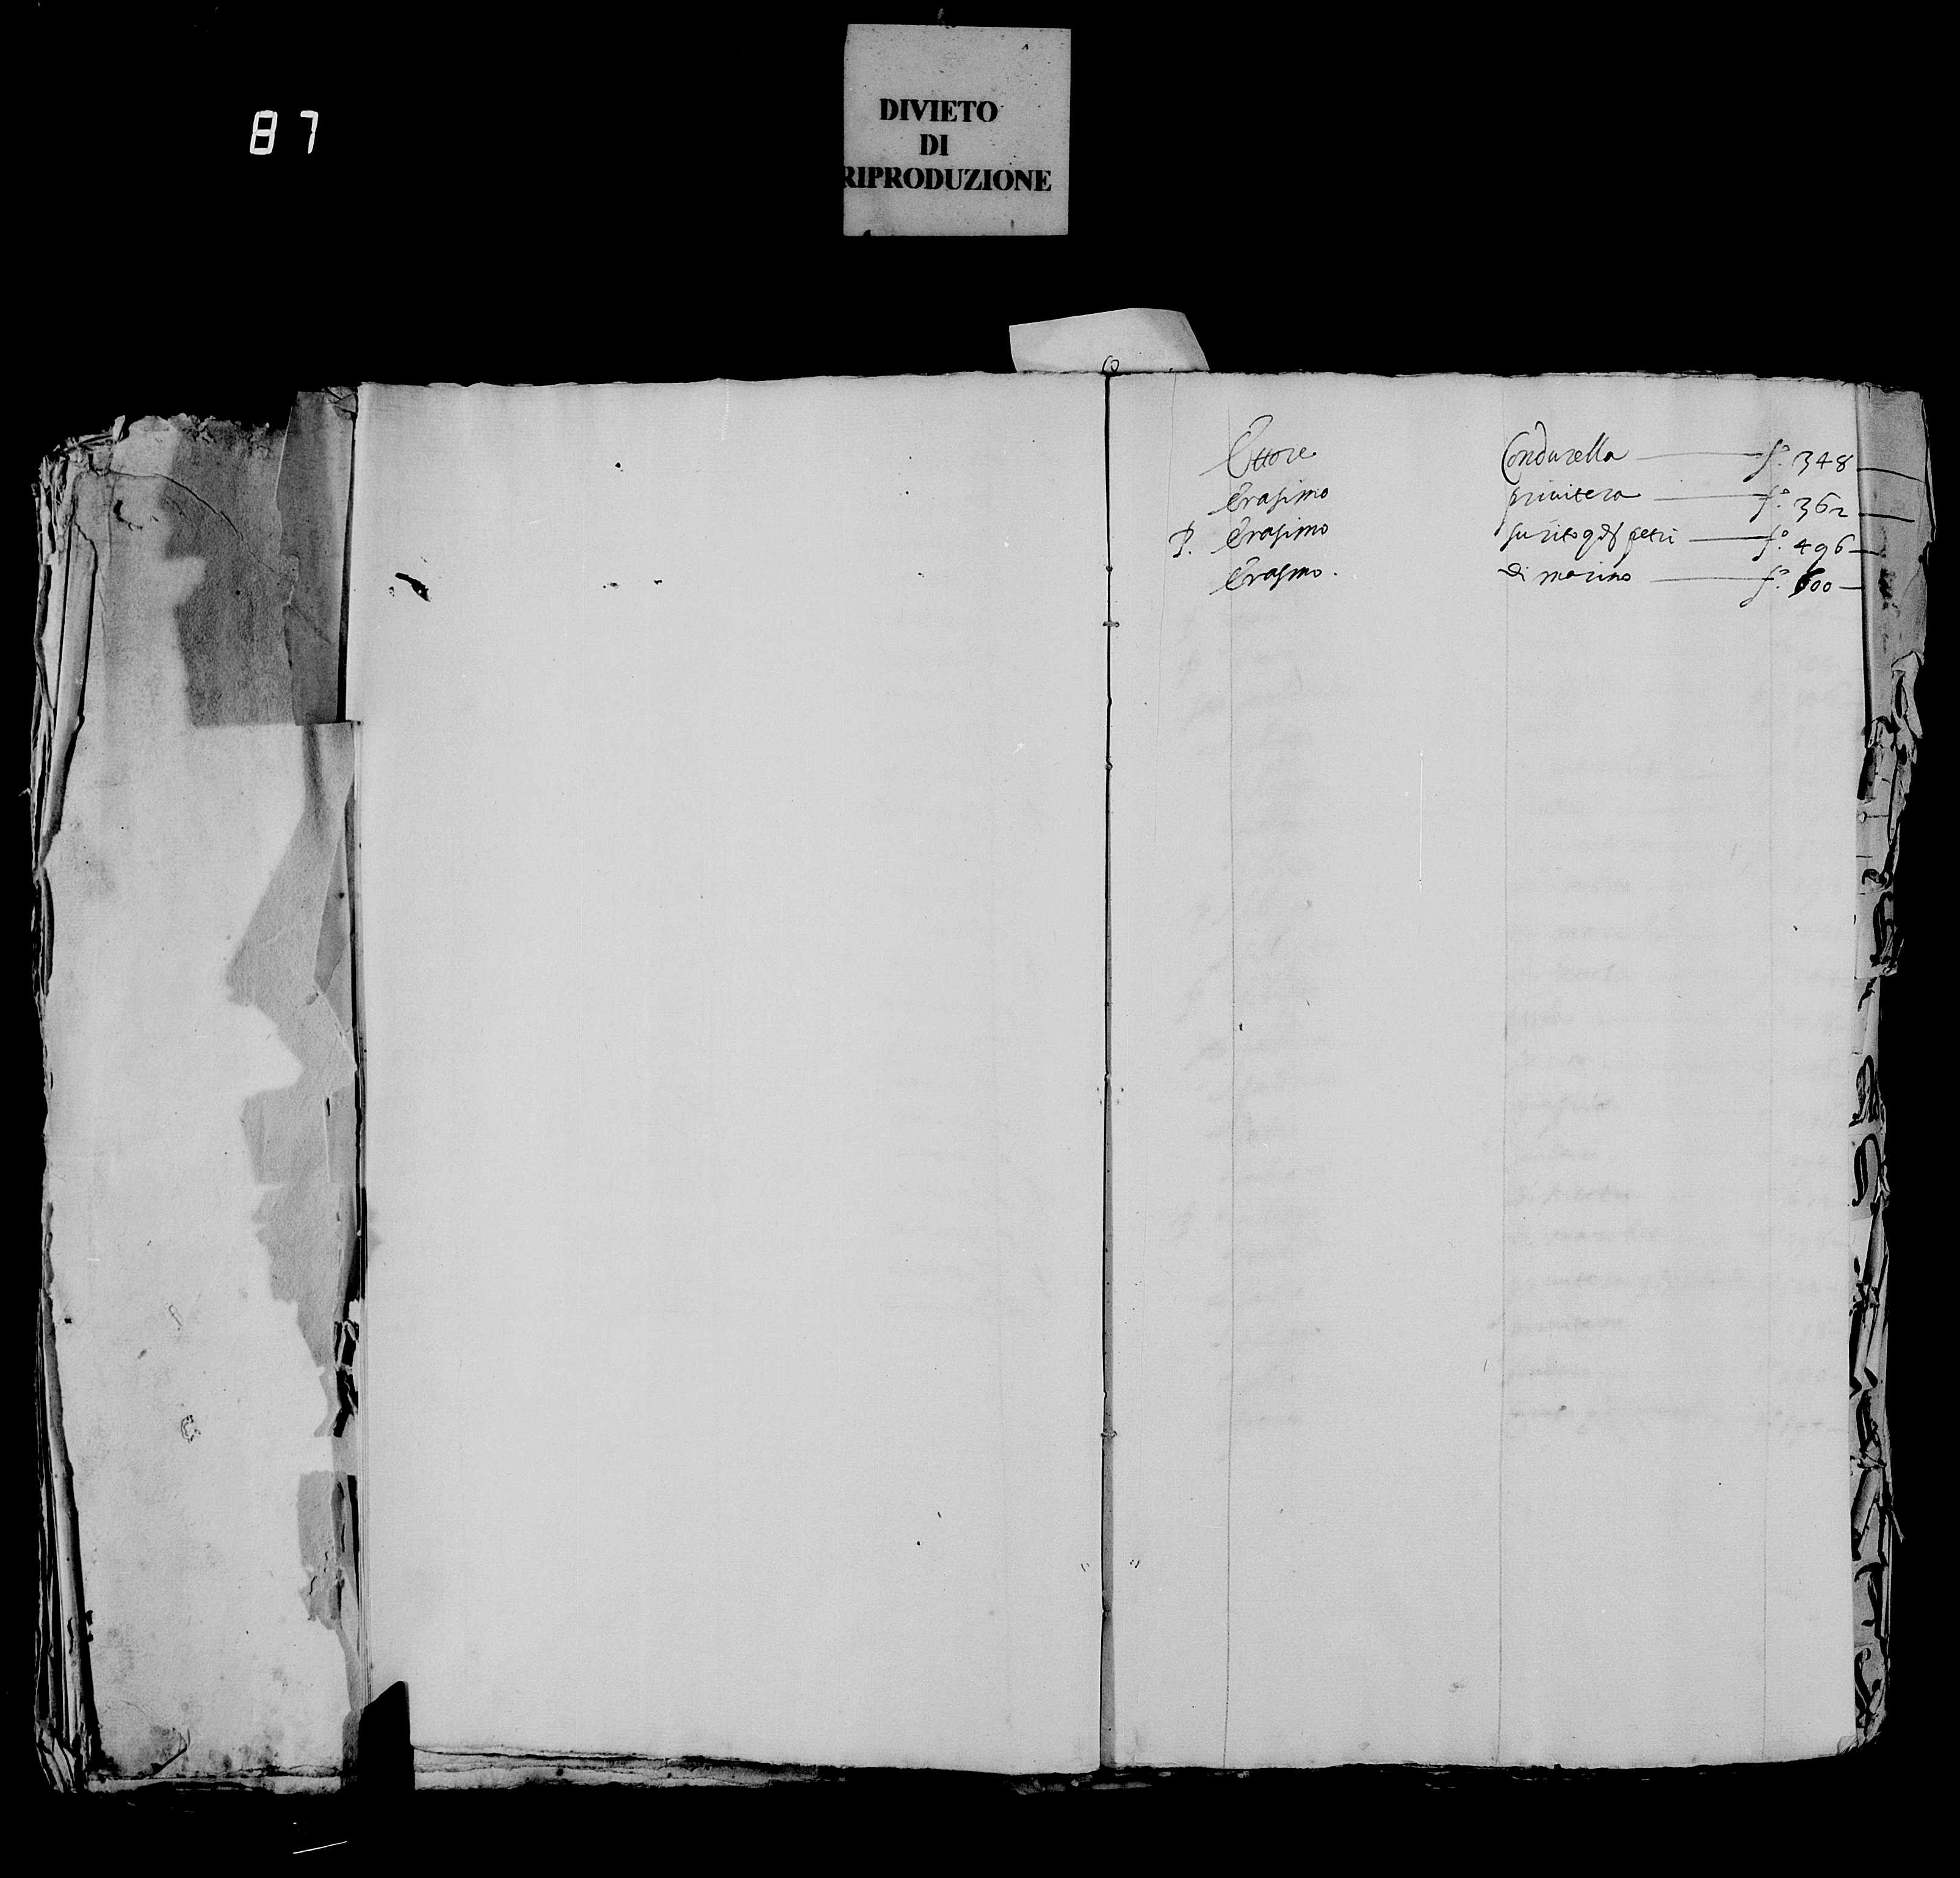 87
DIVIETO
DI
RIPRODUZIONE
Ettore Condurella f.º 348
Erasimo privitera f.º 362
P. Erasimo petri f.º 496
Erasmo. di marino f.º 600